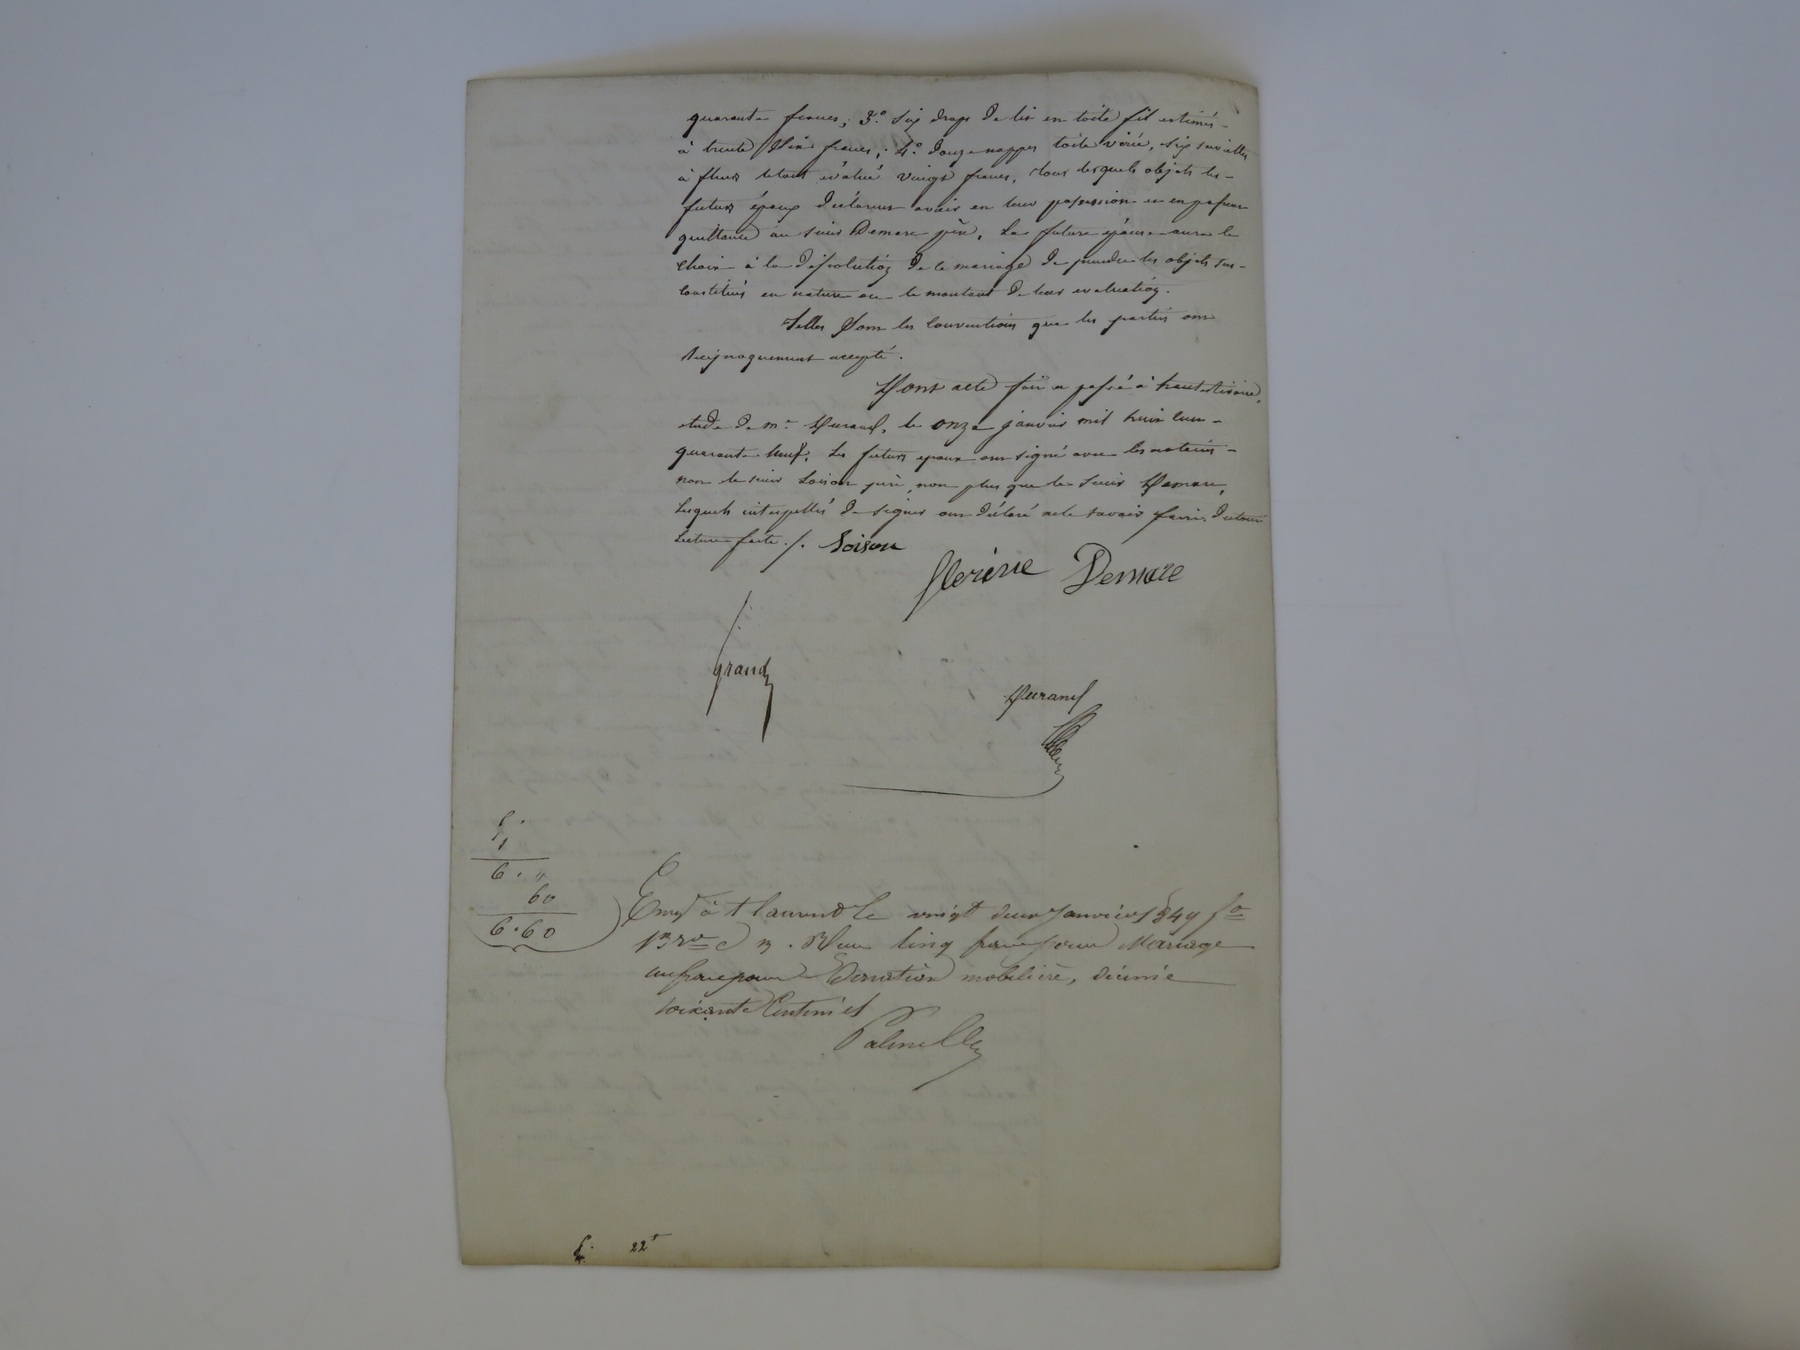 quarante francs; 3.º Six draps de lit en toile fil estimés
à trente Six francs; 4.º douze nappes toile virée, six serviettes
à fleurs le tout évalué vingt francs, tous lesquels objets les
futurs époux déclarent avoir en leur possession et en passer
quittance au sieur Demare père. La future épouse aura le
choix à la dissolution de ce mariage de prendre les objets sus-
constitués en nature ou le montant de leur evaluation.
Telles Sont les Conventions que les parties ont
réciproquement accepté.
Dont acte fait et passé à hauterivoire,
etude de me Durand, le onze janvier mil huit cent
quarante neuf. Les futurs epoux ont signé avec les notaires
non le sieur Loison père, non plus que le Sieur Demare,
lesquels interpellés de signer ont déclaré ne le savoir faire, de tout
Lecture faite ./. Loison
Demare
grand
Durand
6 . "
60
6.60
Enreg à St Laurent le vingt deux Janvier 1849 fo
Reçu cinq francs pour Mariage
un franc pour Donation mobilière, décime
soixante Centimes
22